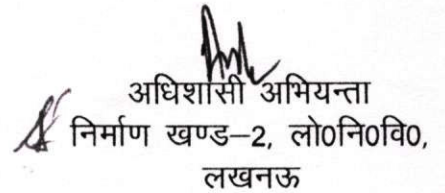 अधिशासी अभियन्ता
निर्माण खण्ड–2, लो0नि0वि0,
लखनऊ